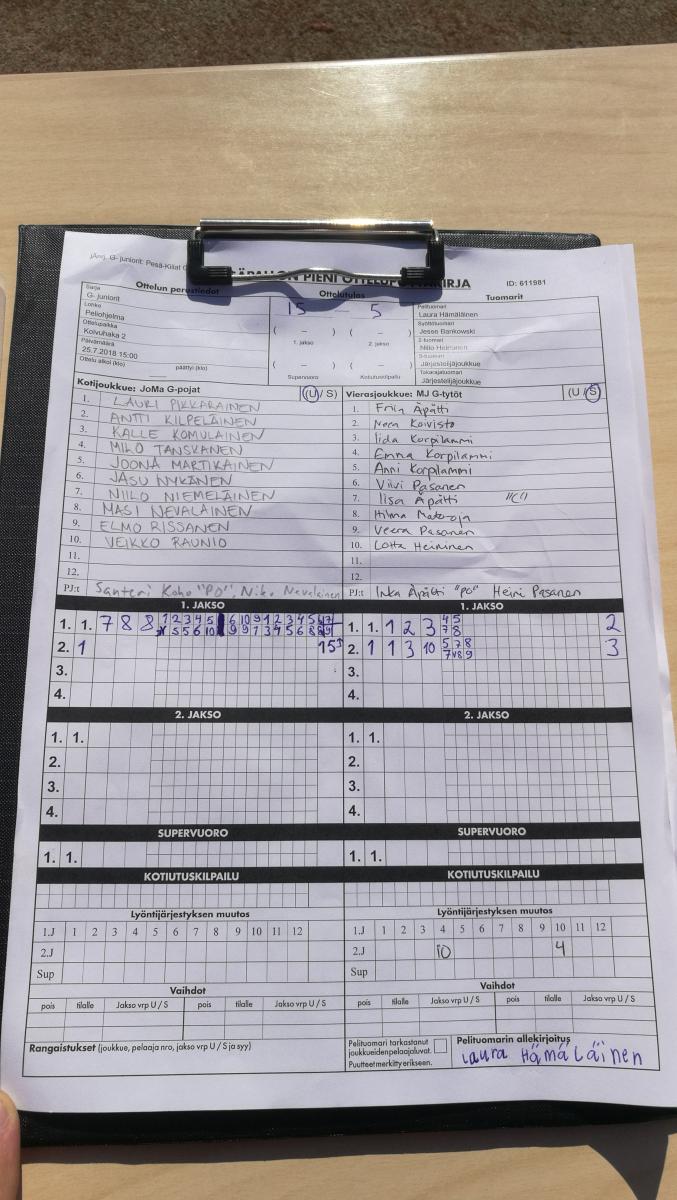 Järj. G- juniorit: Pesä-Kiilat
PIENI OTTELUPÖYTÄKIRJA
ID: 611981
Ottelun perustiedot
Ottelutulos
Tuomarit
Sarja
G- juniorit
Lohko
Peliohjelma
Ottelupaikka
Koivuhaka 2
Päivämäärä
25.7.2018 15:00
Ottelu alkoi (klo) päättyi (klo)
15 – 5
( – ) ( – )
1. jakso 2. jakso
( – ) ( – )
Supervuoro Kotiutuskilpailu
Pelituomari
Laura Hämäläinen
Syöttötuomari
Jesse Bankowski
2-tuomari
Niilo Heinonen
3-tuomari
Järjestelijäjoukkue
Takarajatuomari
Järjestelijäjoukkue
Kotijoukkue: JoMa G-pojat (U / S)
1. LAURI PIKKARAINEN
2. ANTTI KILPELÄINEN
3. KALLE KOMULAINEN
4. MILO TANSKANEN
5. JOONA MARTIKAINEN
6. JASU NYKÄNEN
7. NIILO NIEMELÄINEN
8. MASI NEVALAINEN
9. ELMO RISSANEN
10. VEIKKO RAUNIO
11.
12.
PJ:t Santeri Koho "PO", Niko Nevalainen
Vierasjoukkue: MJ G-tytöt (U / S)
1. Frida Äpätti
2. Neea Koivisto
3. Iida Korpilammi
4. Emma Korpilammi
5. Anni Korpilammi
6. Viivi Pasanen
7. Iisa Äpätti "C"
8. Hilma
9. Veera Pasanen
10. Lotta Heininen
11.
12.
PJ:t Inka Äpätti "PO" Heini Pasanen
1. JAKSO
1. 1. 7 8 8
2. 1 15
3.
4.
1. JAKSO
1. 1. 1 2 3 4 5 2
7 8
2. 1 1 3 10 5 7 8 3
3.
4.
2. JAKSO
1. 1.
2.
3.
4.
2. JAKSO
1. 1.
2.
3.
4.
SUPERVUORO
1. 1.
SUPERVUORO
1. 1.
KOTIUTUSKILPAILU
KOTIUTUSKILPAILU
Lyöntijärjestyksen muutos
1.J 1 2 3 4 5 6 7 8 9 10 11 12
2.J
Sup
Lyöntijärjestyksen muutos
1.J 1 2 3 4 5 6 7 8 9 10 11 12
2.J 10 4
Sup
Vaihdot
pois tilalle Jakso vrp U / S pois tilalle Jakso vrp U / S
Vaihdot
pois tilalle Jakso vrp U / S pois tilalle Jakso vrp U / S
Rangaistukset (joukkue, pelaaja nro, jakso vrp U / S ja syy)
Pelituomari tarkastanut
joukkueidenpelaajaluvat.
Puutteetmerkittyerikseen.
Pelituomarin allekirjoitus
Laura Hämäläinen